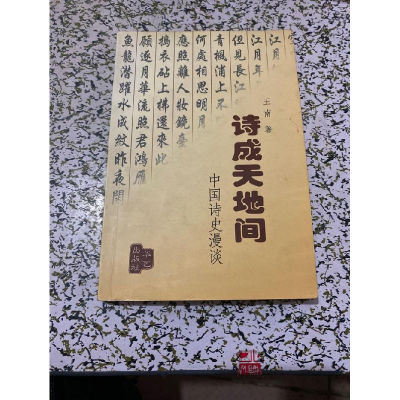 江月
江月年
但見長江
青楓浦上不
何處相思明月
應照離人妝鏡臺
搗衣砧上拂還來此
願逐月華流照君鴻雁
魚龍潛躍水成紋昨夜閒
王南 著
诗成天地间
中国诗史漫谈
华艺
出版社